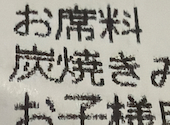 お席料
炭焼き
お子様